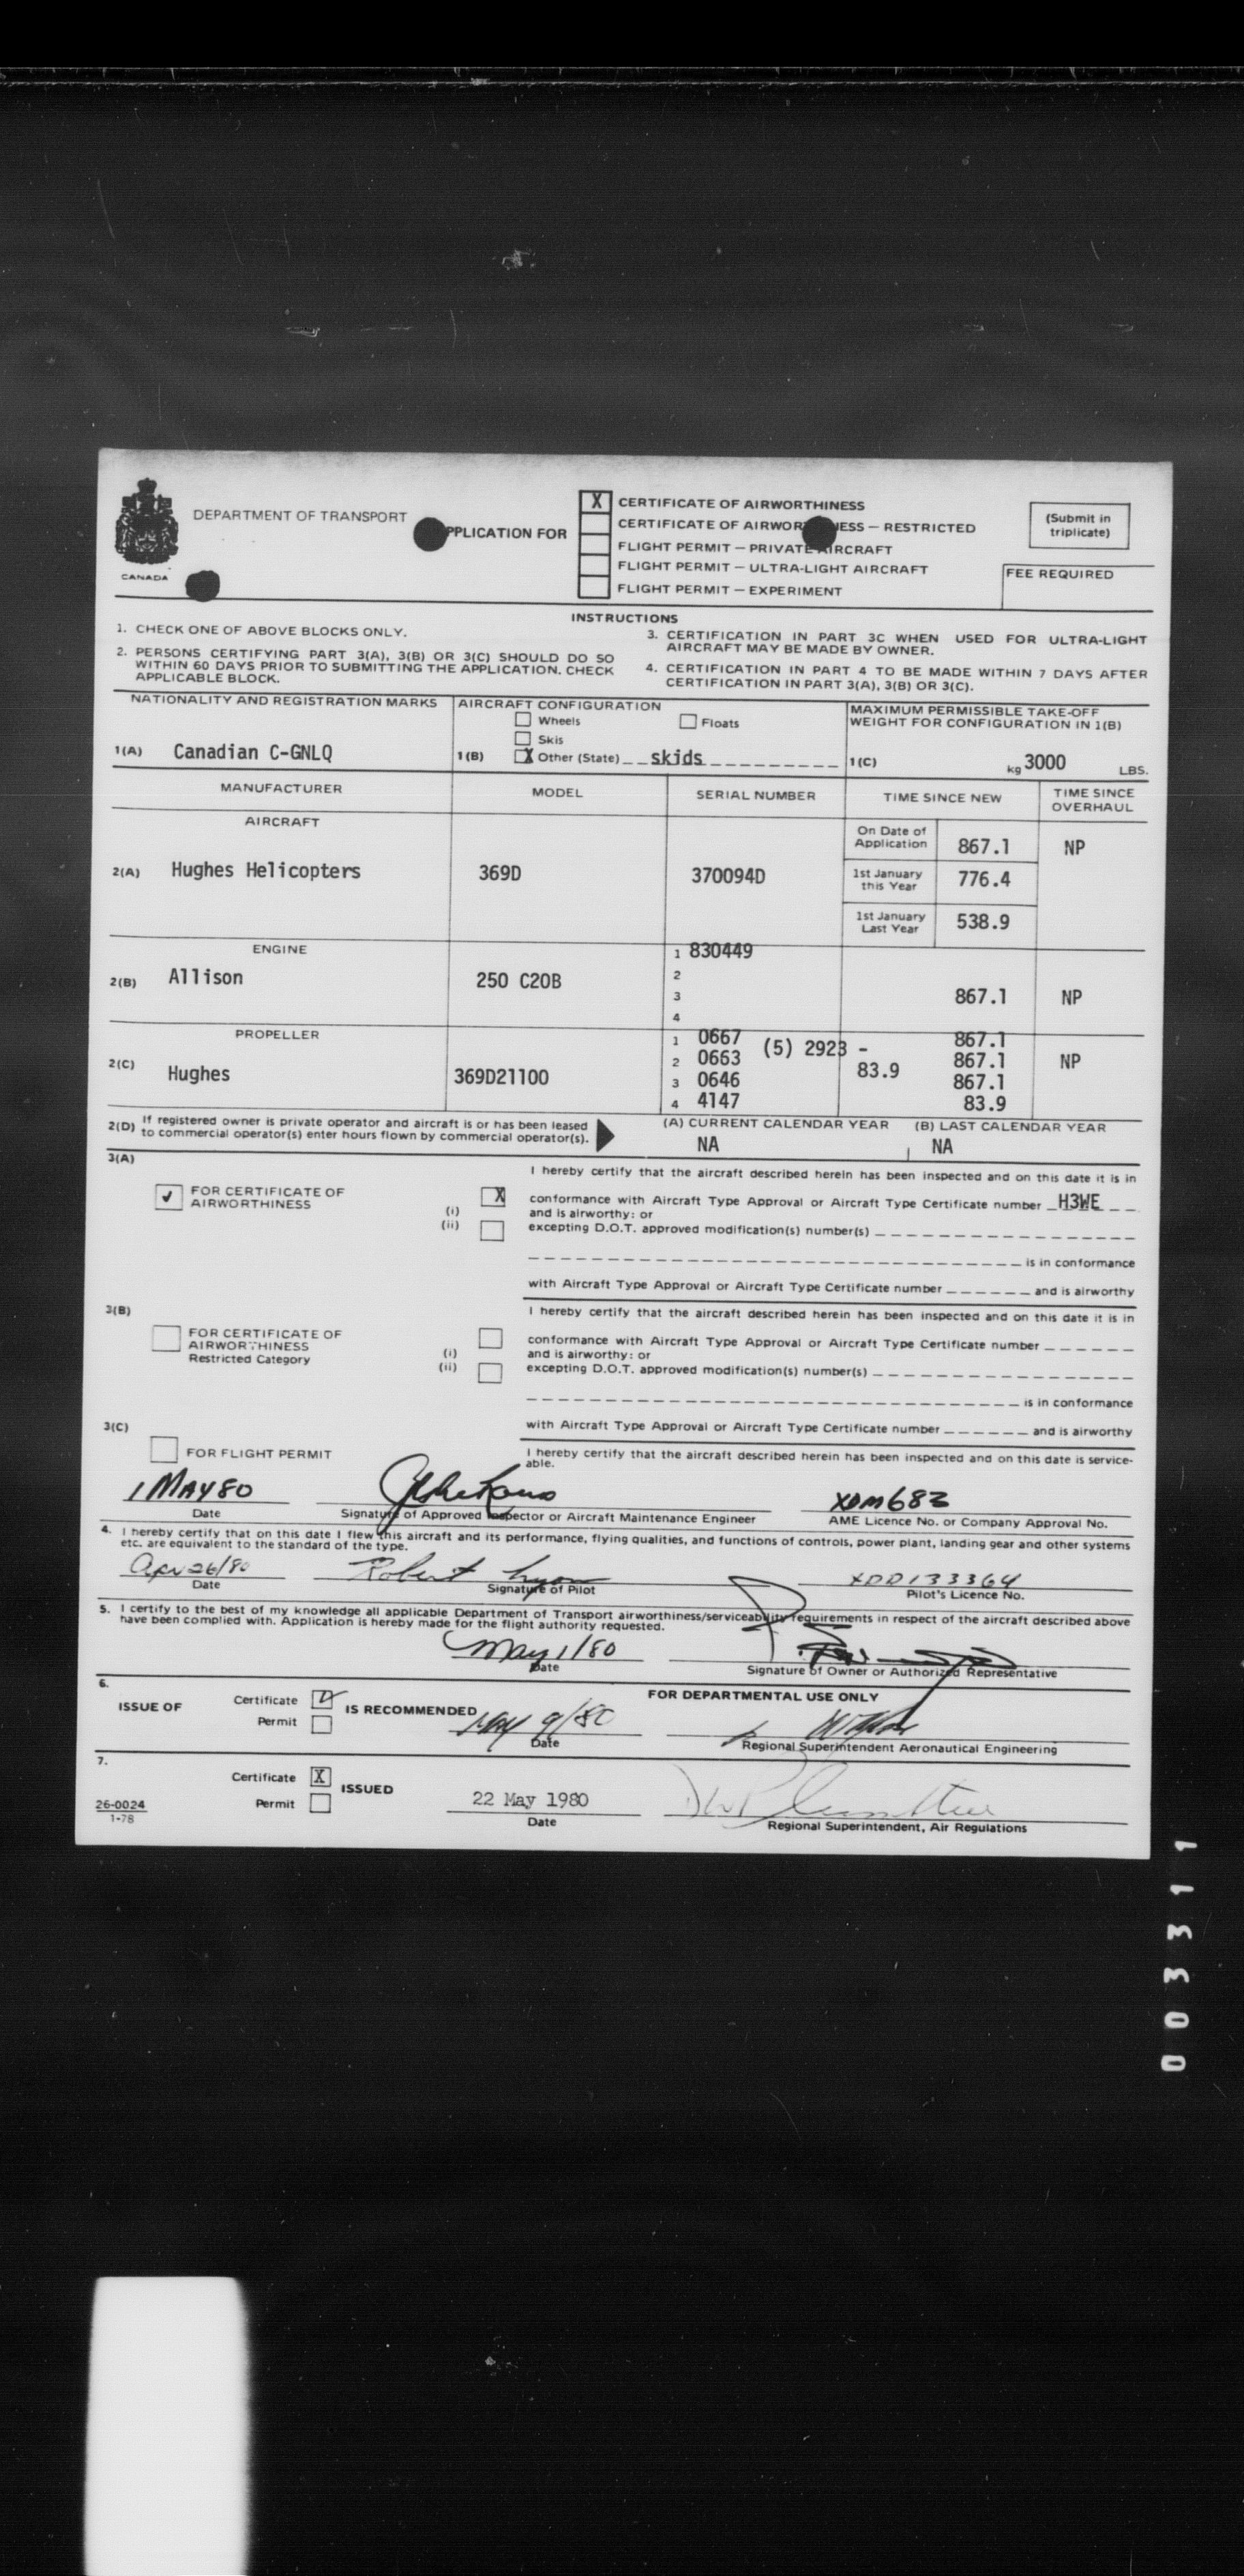 DEPARTMENT OF TRANSPORT
CANADA
PPLICATION FOR
X CERTIFICATE OF AIRWORTHINESS
CERTIFICATE OF AIRWOR ESS – RESTRICTED
FLIGHT PERMIT – PRIVATE AIRCRAFT
FLIGHT PERMIT – ULTRA-LIGHT AIRCRAFT
FLIGHT PERMIT – EXPERIMENT
(Submit in
triplicate)
FEE REQUIRED
INSTRUCTIONS
1. CHECK ONE OF ABOVE BLOCKS ONLY.
2. PERSONS CERTIFYING PART 3(A), 3(B) OR 3(C) SHOULD DO SO
WITHIN 60 DAYS PRIOR TO SUBMITTING THE APPLICATION. CHECK
APPLICABLE BLOCK.
3. CERTIFICATION IN PART 3C WHEN USED FOR ULTRA-LIGHT
AIRCRAFT MAY BE MADE BY OWNER.
4. CERTIFICATION IN PART 4 TO BE MADE WITHIN 7 DAYS AFTER
CERTIFICATION IN PART 3(A), 3(B) OR 3(C).
NATIONALITY AND REGISTRATION MARKS
1(A) Canadian C-GNLQ
AIRCRAFT CONFIGURATION
Wheels Floats
Skis
1(B) X Other (State) skids
MAXIMUM PERMISSIBLE TAKE-OFF
WEIGHT FOR CONFIGURATION IN 1(B)
1(C) kg 3000 LBS.
MANUFACTURER MODEL SERIAL NUMBER TIME SINCE NEW TIME SINCE
OVERHAUL
AIRCRAFT
2(A) Hughes Helicopters 369D 370094D
On Date of
Application 867.1 NP
1st January
this Year 776.4
1st January
Last Year 538.9
ENGINE
2(B) Allison 250 C20B
1 830449
2
3 867.1 NP
4
PROPELLER
2(C) Hughes 369D21100
1 0667 (5) 2923 - 867.1
2 0663 83.9 867.1 NP
3 0646 867.1
4 4147 83.9
2(D) If registered owner is private operator and aircraft is or has been leased
to commercial operator(s) enter hours flown by commercial operator(s).
(A) CURRENT CALENDAR YEAR (B) LAST CALENDAR YEAR
NA NA
3(A)
FOR CERTIFICATE OF
AIRWORTHINESS
I hereby certify that the aircraft described herein has been inspected and on this date it is in
(i) X conformance with Aircraft Type Approval or Aircraft Type Certificate number H3WE
and is airworthy: or
(ii) excepting D.O.T. approved modification(s) number(s)
is in conformance
with Aircraft Type Approval or Aircraft Type Certificate number and is airworthy
3(B)
FOR CERTIFICATE OF
AIRWORTHINESS
Restricted Category
I hereby certify that the aircraft described herein has been inspected and on this date it is in
(i) conformance with Aircraft Type Approval or Aircraft Type Certificate number
and is airworthy: or
(ii) excepting D.O.T. approved modification(s) number(s)
is in conformance
with Aircraft Type Approval or Aircraft Type Certificate number and is airworthy
3(C)
FOR FLIGHT PERMIT
I hereby certify that the aircraft described herein has been inspected and on this date is service-
able.
1 MAY 80 XDM683
Date Signature of Approved Inspector or Aircraft Maintenance Engineer AME Licence No. or Company Approval No.
4. I hereby certify that on this date I flew this aircraft and its performance, flying qualities, and functions of controls, power plant, landing gear and other systems
etc. are equivalent to the standard of the type.
Apr 26/80 Robert XDD133364
Date Signature of Pilot Pilot's Licence No.
5. I certify to the best of my knowledge all applicable Department of Transport airworthiness/serviceability requirements in respect of the aircraft described above
have been complied with. Application is hereby made for the flight authority requested.
May 1/80
Date Signature of Owner or Authorized Representative
6.
FOR DEPARTMENTAL USE ONLY
ISSUE OF Certificate IS RECOMMENDED
Permit
MAY 9/80
Date Regional Superintendent Aeronautical Engineering
7.
Certificate X ISSUED
Permit
22 May 1980
Date Regional Superintendent, Air Regulations
26-0024
1-78
003311